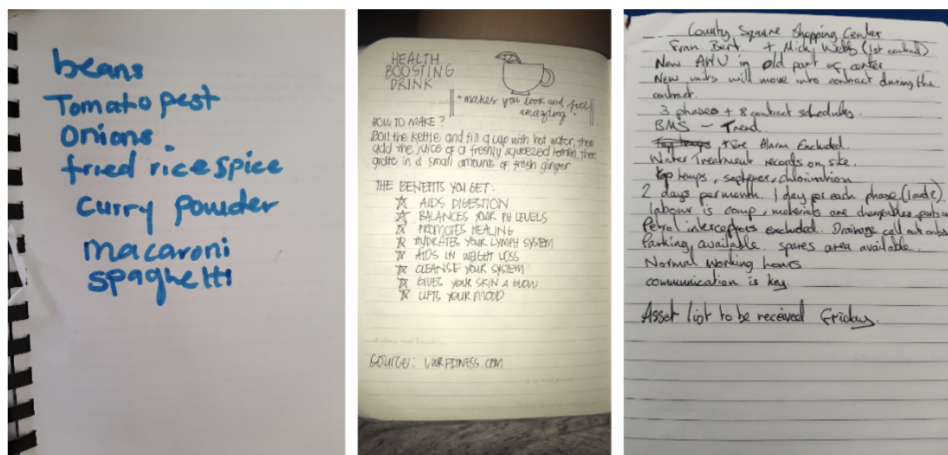 beans
Tomato pest
Onions
fried rice spice
curry powder
macaroni
spaghetti
HEALTH
BOOSTING
DRINK
- makes you look and feel
amazing!
HOW TO MAKE?
Boil the kettle and fill a cup with hot water, then
add the juice of a freshly squeezed lemon, then
grate in a small amount of fresh ginger
THE BENEFITS YOU GET:
AIDS DIGESTION
BALANCES YOUR PH LEVELS
PROMOTES HEALING
HYDRATES YOUR LYMPH SYSTEM
AIDS IN WEIGHT LOSS
CLEANSE YOUR SYSTEM
GIVES YOUR SKIN A GLOW
LIFTS YOUR MOOD
Source:
County Square Shopping Center
Fran Bert + Micky Webb (1st contact)
New AHU in old part of center
New units will move into contract during the
contract.
3 phases + 8 contract schedules.
BMS - Trend.
Fire Alarm Excluded.
Water Treatment records on site.
temps, softener, chlorination
2 days per month. 1 day for each phase
labour is comp, materials are chargeable
Petrol interceptors excluded. Drainage call out
Parking available. spares area available.
Normal Working hours
communication is key
Asset list to be received Friday.